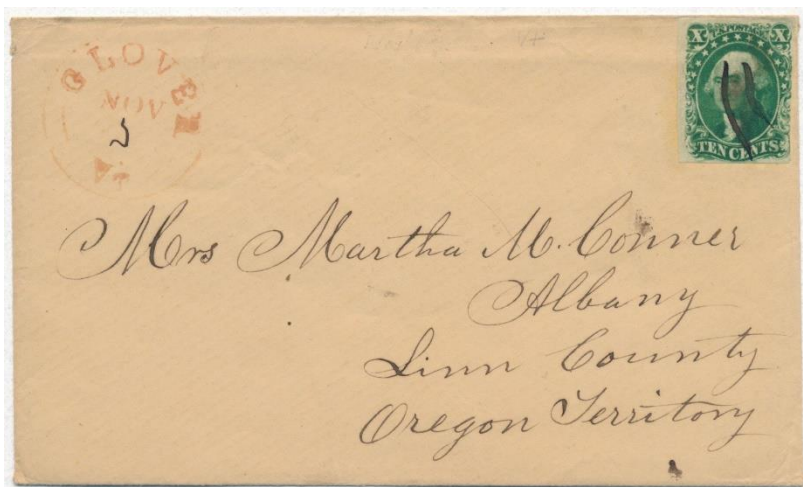 GLOVER
NOV
X U.S. POSTAGE X
TEN CENTS
Mrs Martha M. Conner
Albany
Linn County
Oregon Territory